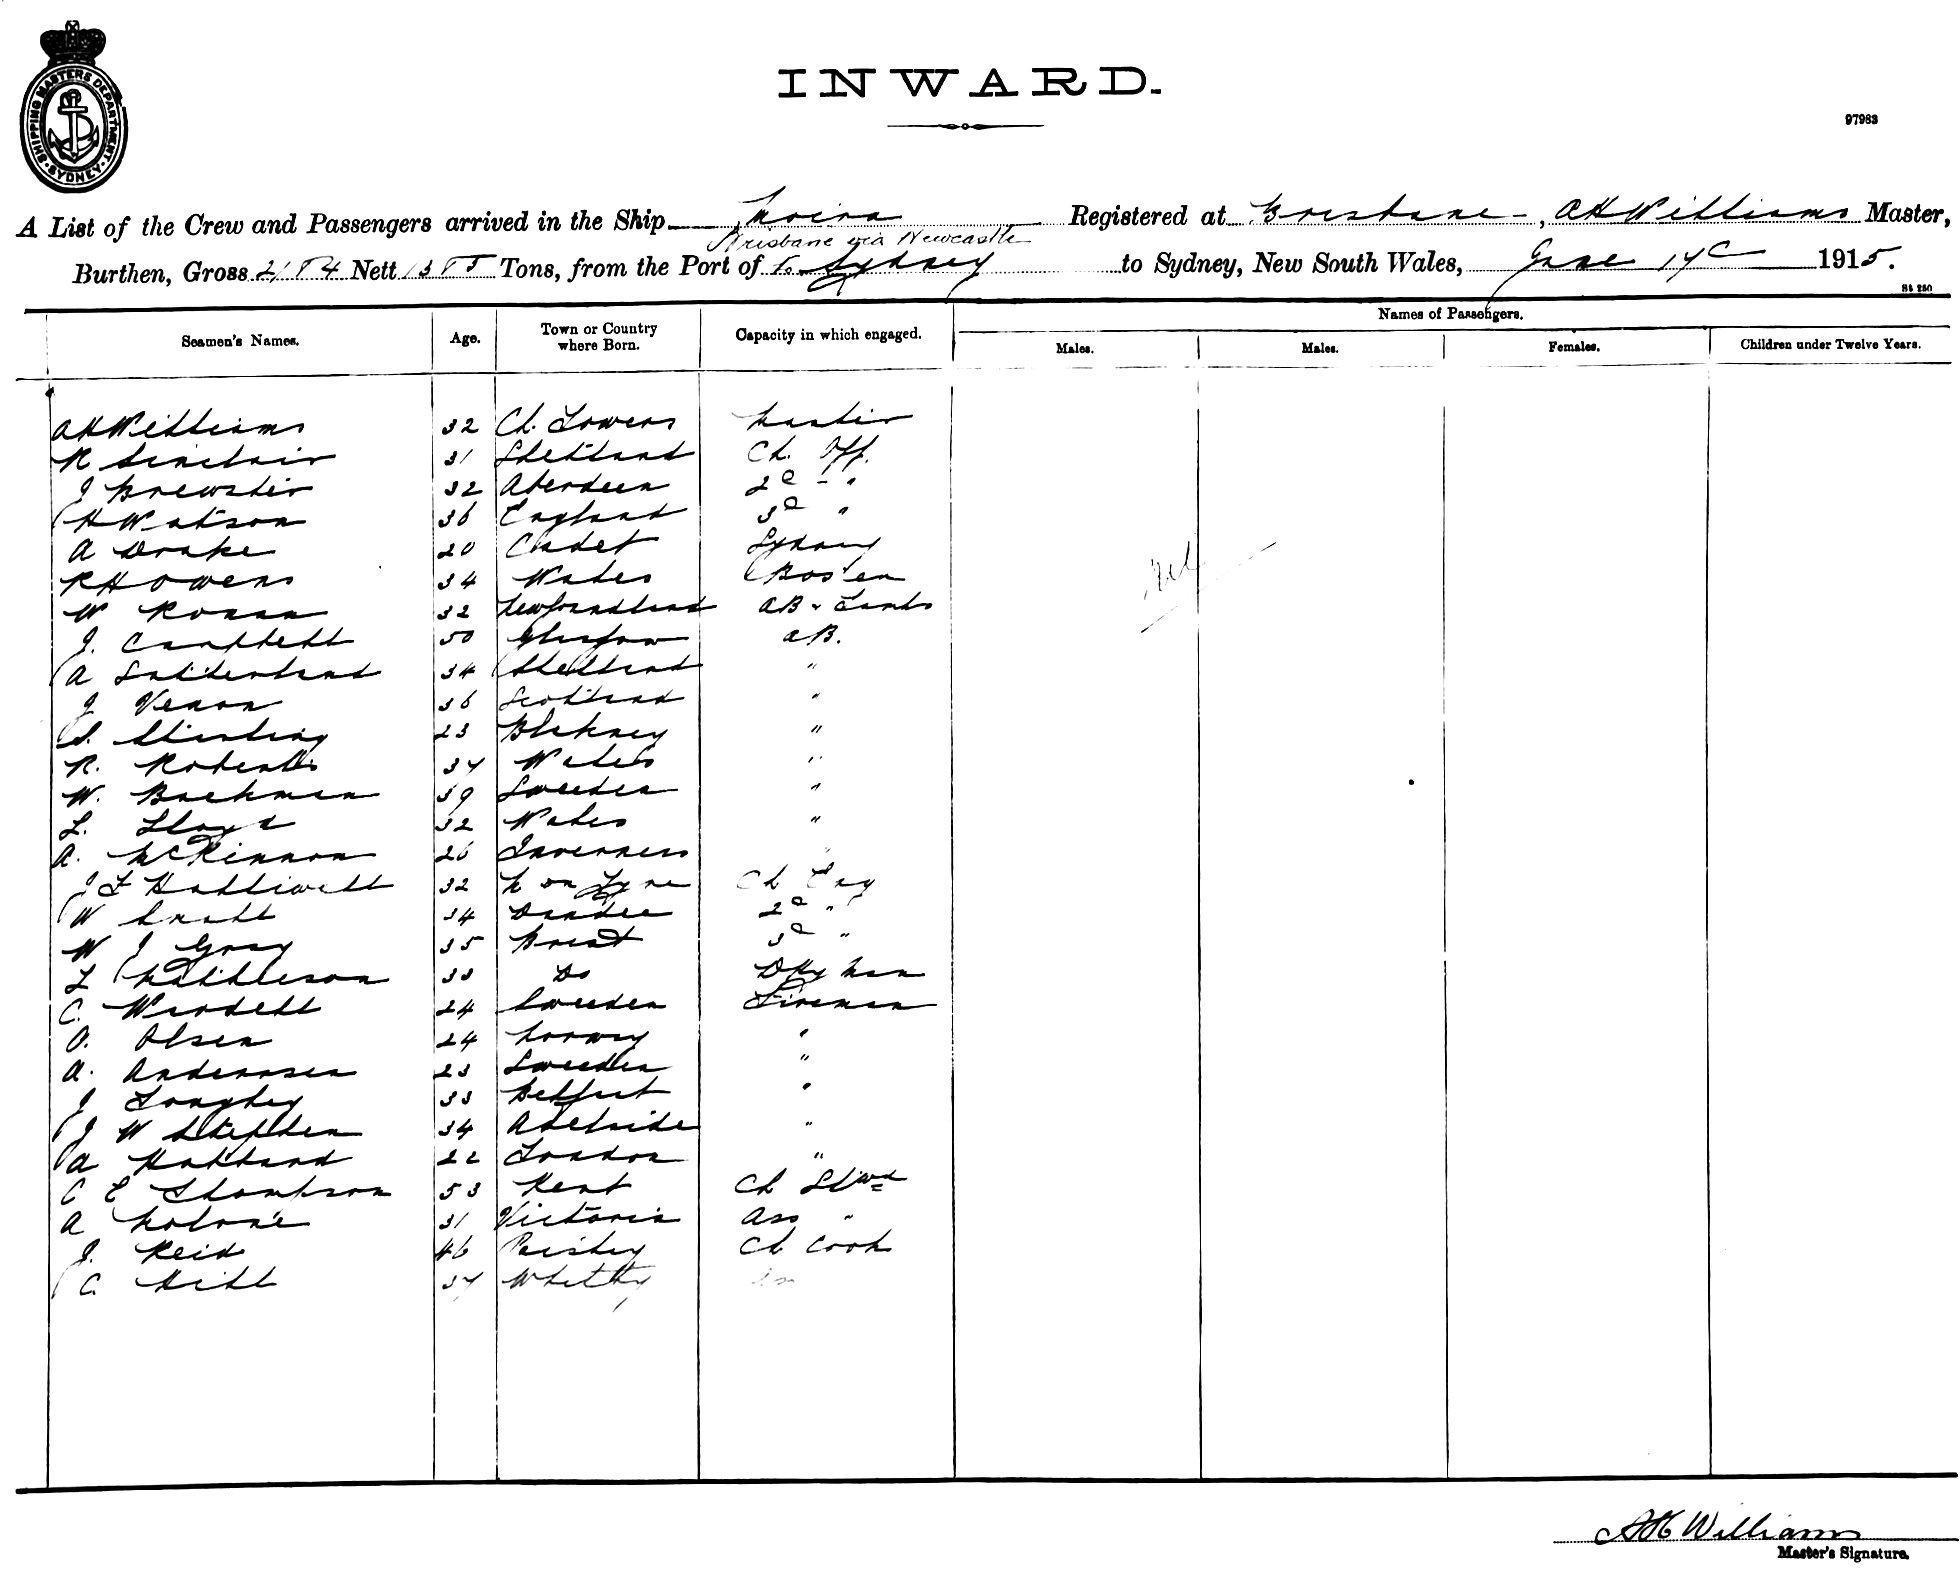 SHIPPING MASTERS DEPARTMENT
SYDNEY
INWARD.
97983
A List of the Crew and Passengers arrived in the Ship Moira Registered at Brisbane, AH Williams Master,
Brisbane via Newcastle
Burthen, Gross 2184 Nett 1385 Tons, from the Port of to Sydney to Sydney, New South Wales, June 1915.
Seamen's Names. Age. Town or Country where Born. Capacity in which engaged. Names of Passengers.
Males. Males. Females. Children under Twelve Years.
AH Williams 32 Ch. Towers Master
R Sinclair 31 Shetland Ch. Off.
J Brewster 32 Aberdeen 2d - "
H Watson 36 England 3d "
A Drake 20 Cadet Sydney
RH Owens 34 Wales Bos'en
W Ronan 32 Newfoundland AB & Lamps
J. Campbell 50 Glasgow AB.
A Sutherland 34 Shetland "
J Venon 36 Scotland "
S. Stirling 23 Blakney "
R. Roberts 37 Wales "
W. Backman 39 Sweeden "
L. Lloyd 32 Wales "
A. McKinnon 26 Inverness "
J F Halliwell 32 N on Tyne Ch Eng
W Snall 34 Dundee 2d "
W J Gray 35 Brest 3d "
L Mathieson 33 Do Dky Man
C. Wardell 24 Sweeden Fireman
O. Olsen 24 Norway "
A. Andernsen 23 Sweeden "
J Longhey 33 Belfast "
J W Stephen 34 Adelaide "
A Holland 22 London "
C E Thompson 53 Kent Ch Stwd
A Malone 31 Victoria Ass "
J. Reid 46 Paisley Ch Cook
C. Hill 37 Whitby
Nil
AH Williams
Master's Signature.